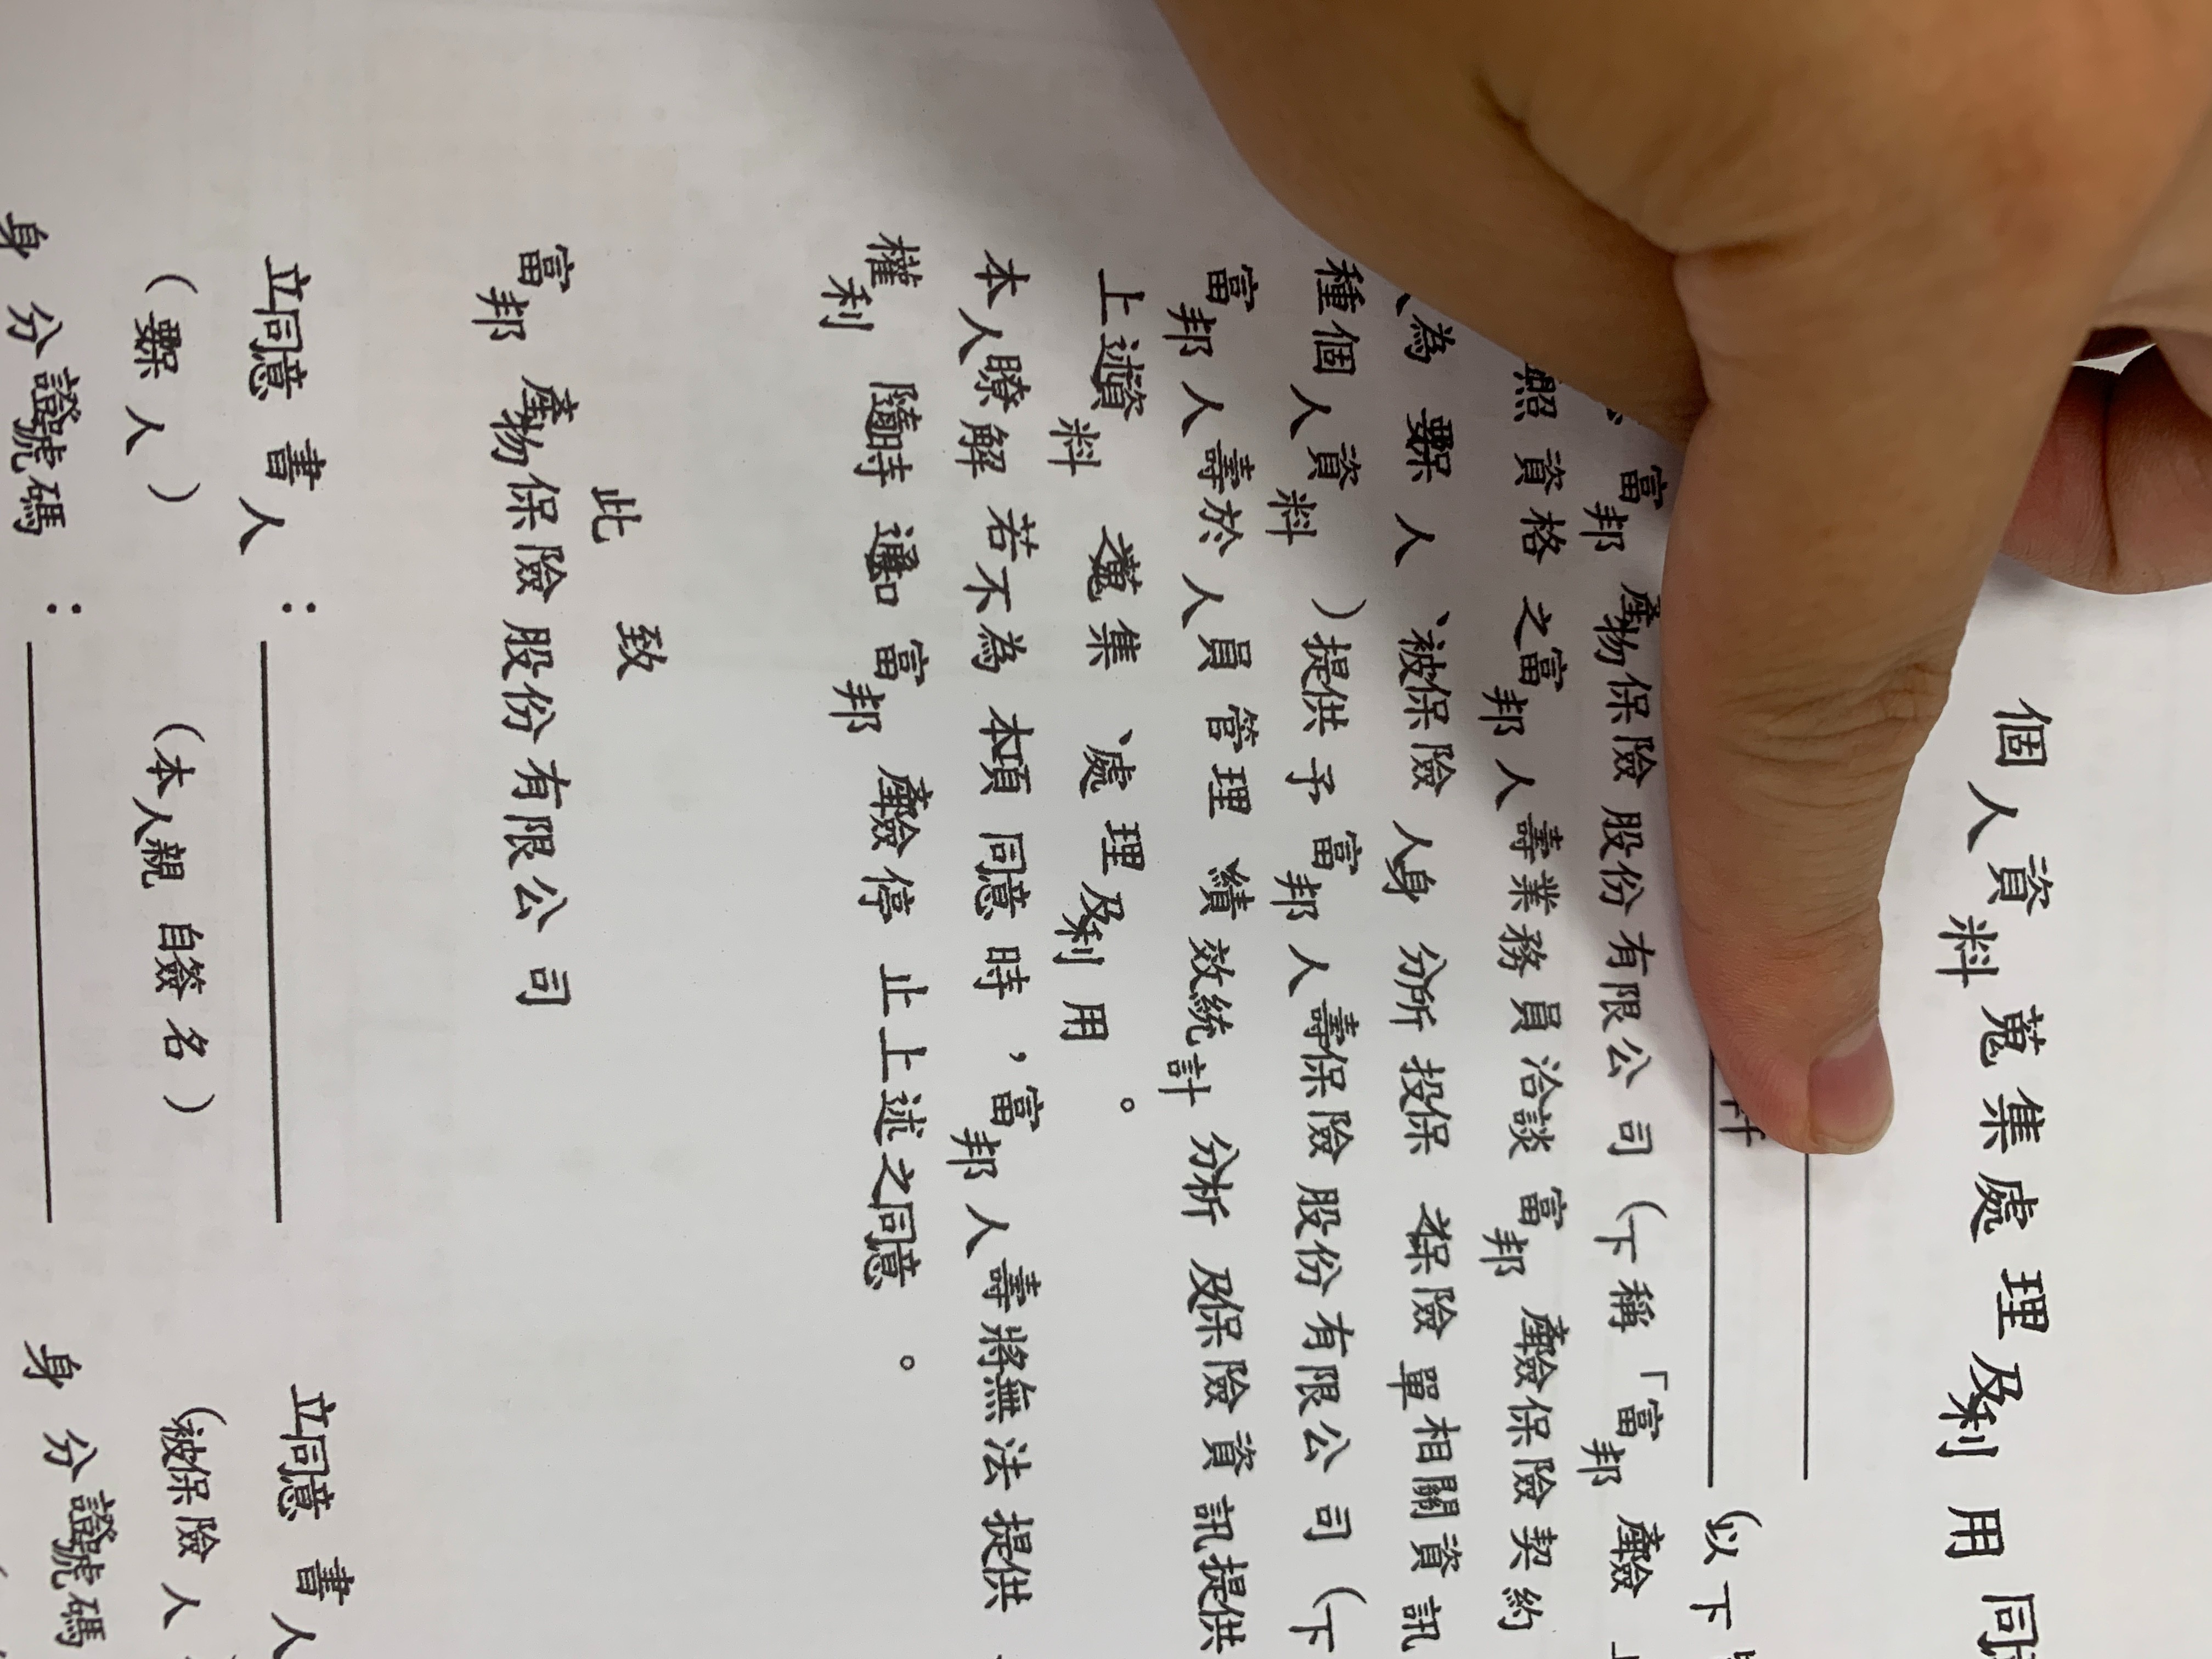 個人資料蒐集處理及利用同
（以下
富邦產物保險股份有限公司（下稱「富邦產險
照資格之富邦人壽業務員洽談富邦產險保險契約
、為要保人、被保險人身分所投保之保險單相關資訊
種個人資料）提供予富邦人壽保險股份有限公司（下
富邦人壽於人員管理、績效統計分析及保險資訊提供
上述資料之蒐集、處理及利用。
本人瞭解若不為本項同意時，富邦人壽將無法提供
權利隨時通知富邦產險停止上述之同意。
此致
富邦產物保險股份有限公司
立同意書人： 立同意書人
（要保人）（本人親自簽名） （被保險人
身分證號碼： 身分證號碼